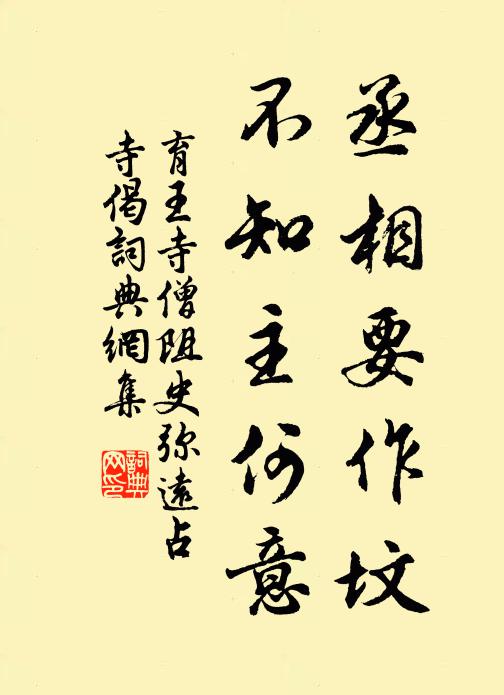 丞相要作坟
不知主何意
育王寺僧阻史弥遠占
寺偈詞典網集
詞典网印